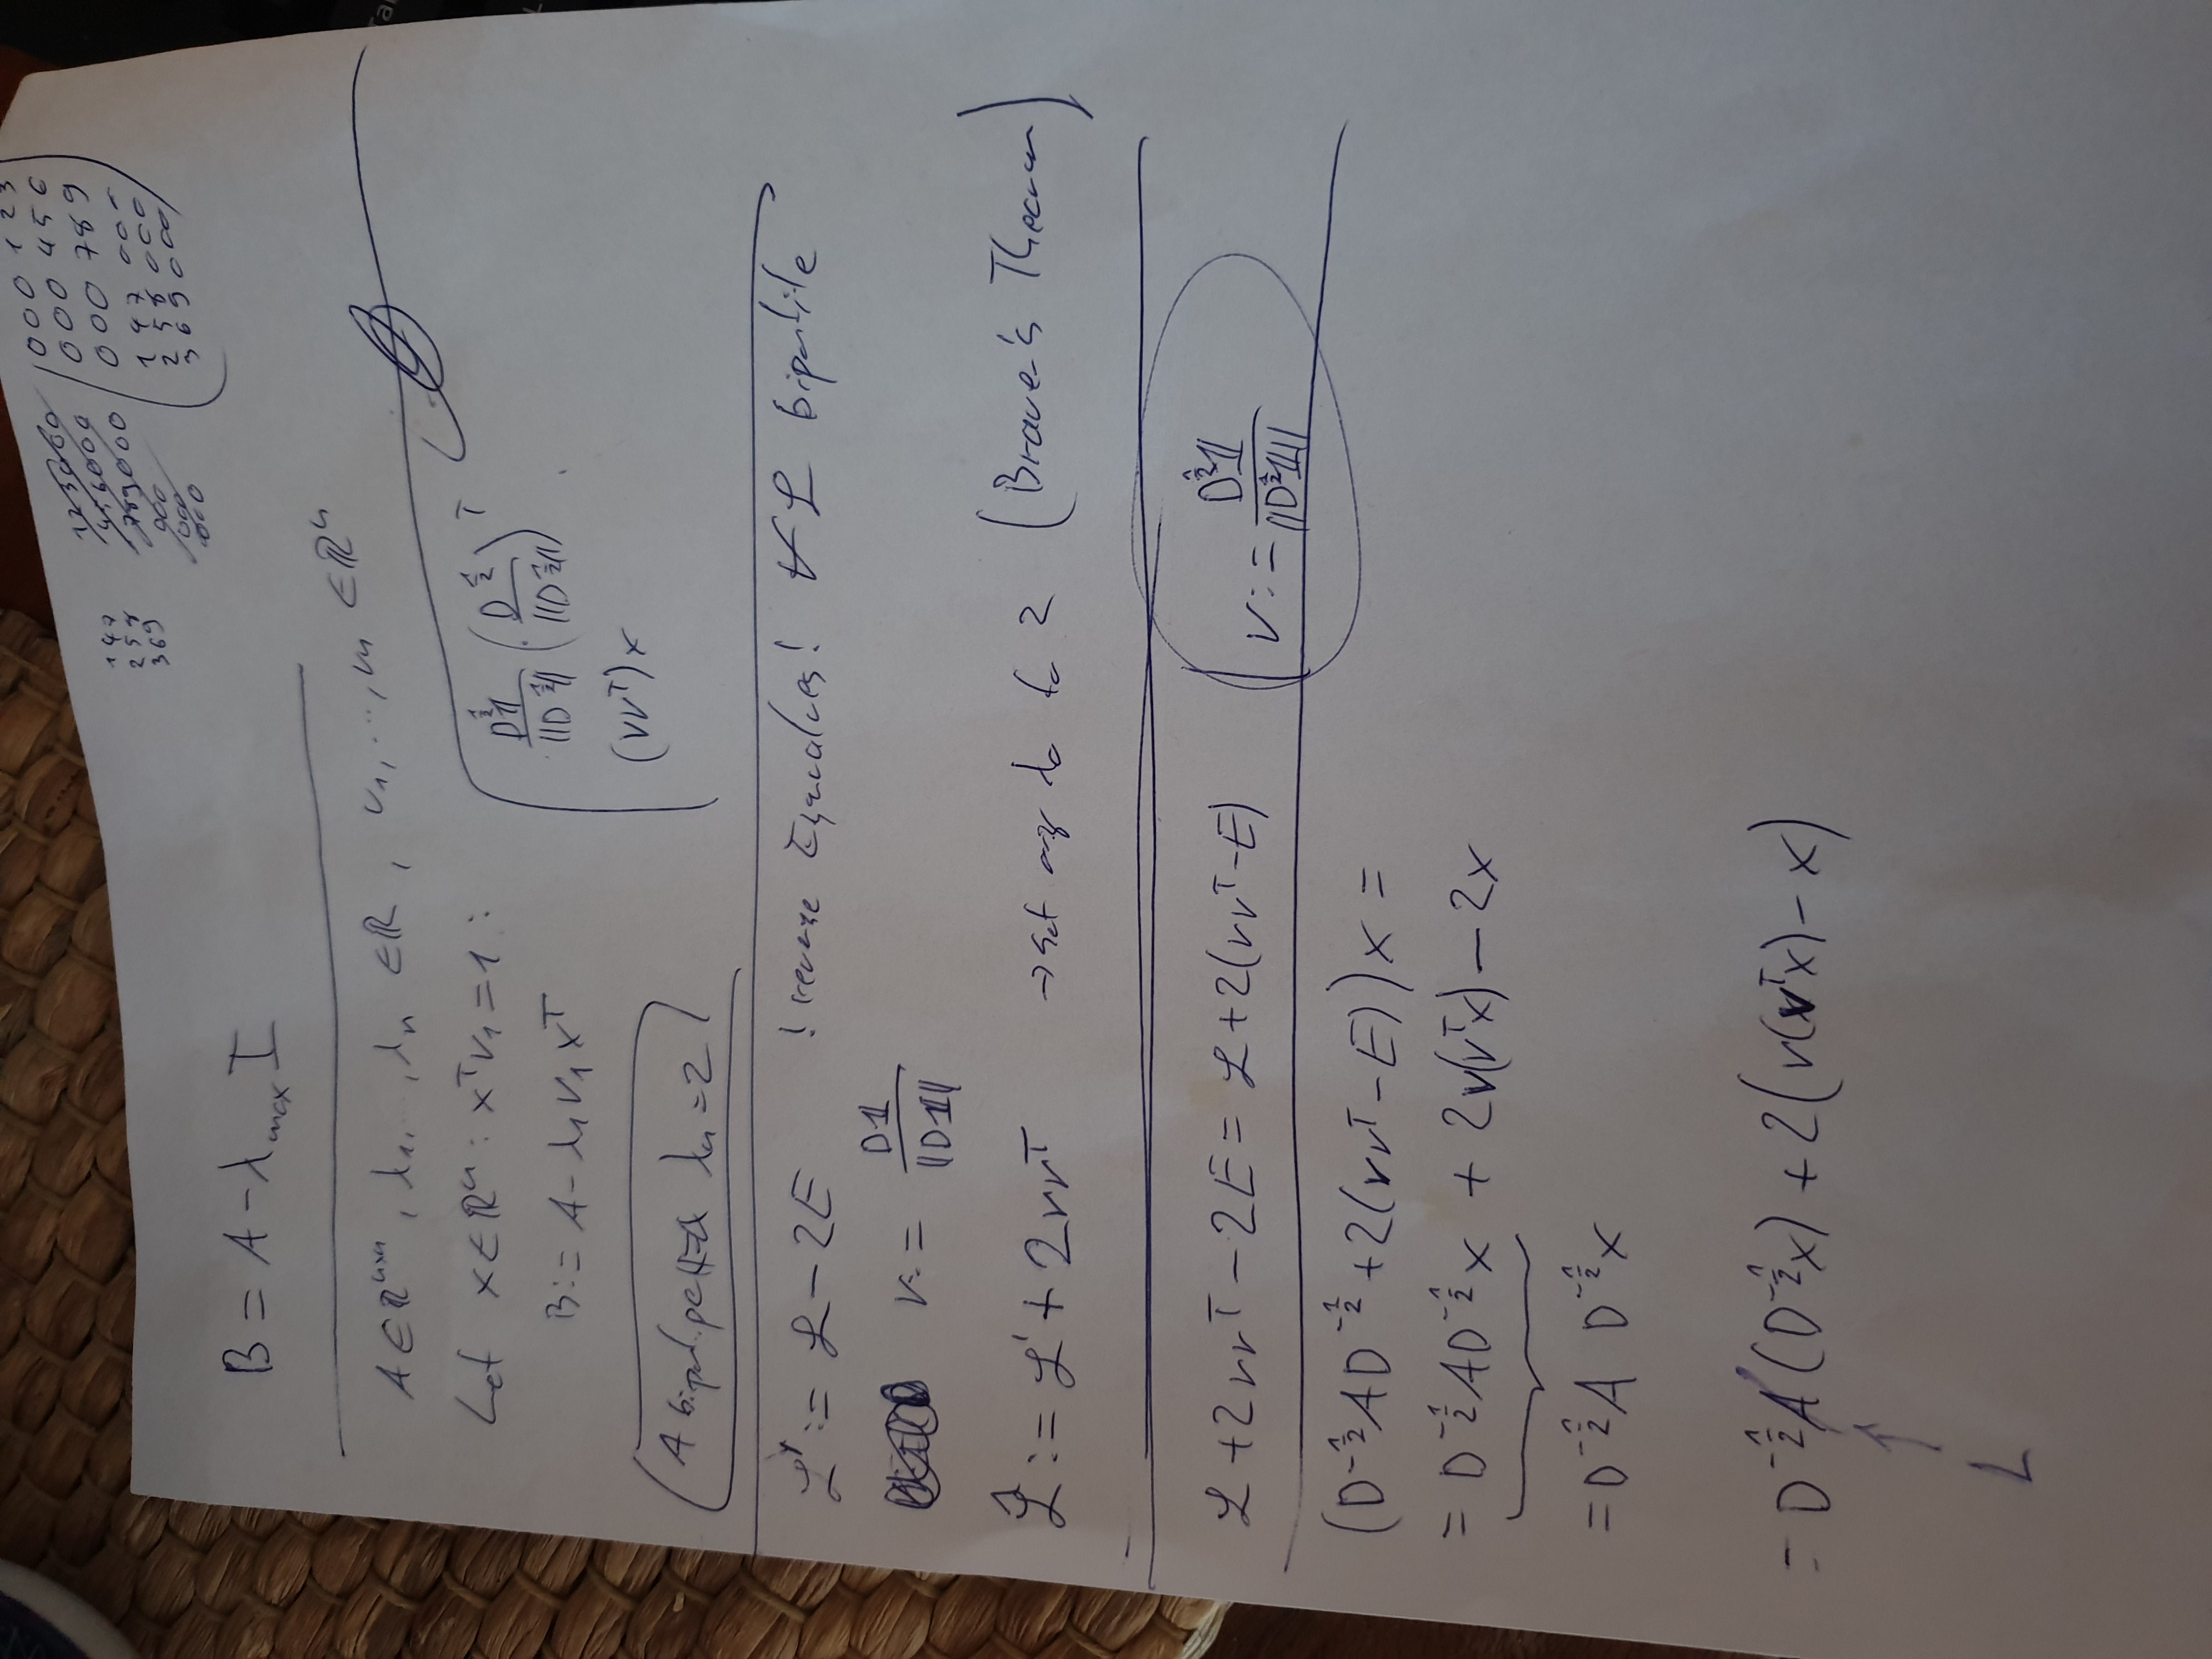 147
258
369
123000
456000
789000
000
000
000
000 123
000 456
000 789
147 000
258 000
369 000
B = A - λ_max I
A ∈ ℝ^{n×n}, λ₁, ..., λₙ ∈ ℝ, v₁, ..., vₙ ∈ ℝⁿ
Let x ∈ ℝⁿ : xᵀv₁ = 1 :
B := A - λ₁v₁xᵀ
D^{1/2}𝟙 / ||D^{1/2}𝟙|| · (D^{1/2} / ||D^{1/2}||)ᵀ
(vvᵀ)x
A λₙ = 2
ℒ' := ℒ - 2E ! reverse ! ∀ ℒ bipartite
v := D𝟙 / ||D𝟙||
ℒ̂ := ℒ' + 2vvᵀ → set λ₀ to 2 (Brauer's Theorem)
ℒ + 2vvᵀ - 2E = ℒ + 2(vvᵀ - E)
v := D^{1/2}𝟙 / ||D^{1/2}𝟙||
(D^{-1/2}AD^{-1/2} + 2(vvᵀ - E))x =
= D^{-1/2}AD^{-1/2}x + 2v(vᵀx) - 2x
= D^{-1/2}A D^{-1/2}x
= D^{-1/2}A(D^{-1/2}x) + 2(v(vᵀx) - x)
L